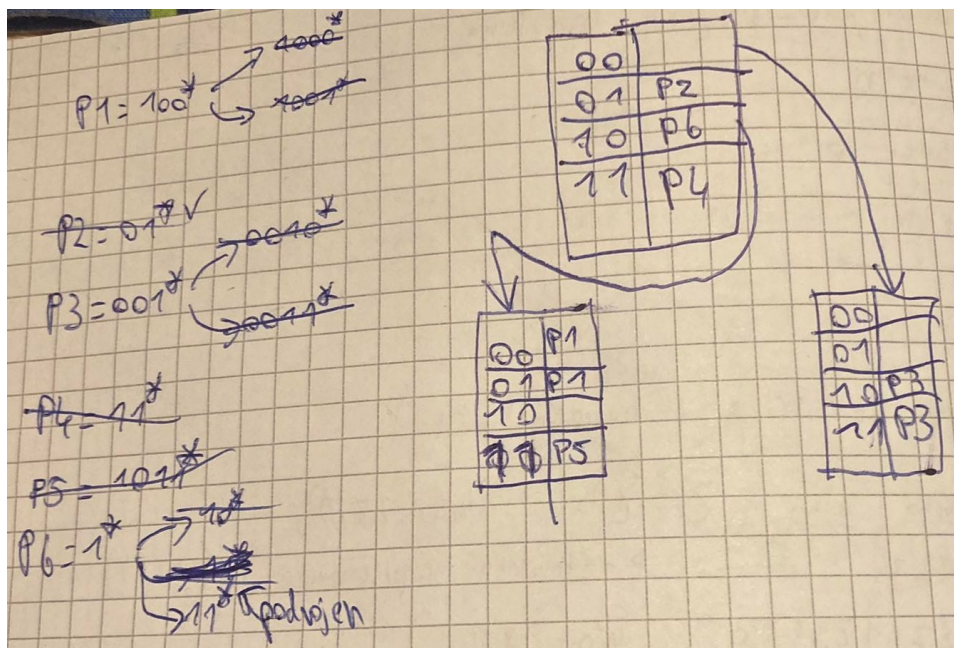 P1=100* 1000*
1001*
P2=01* ✓
P3=001* 0010*
0011*
P4=11*
P5=1011*
P6=1* 10*
11* podvojen
00
01 P2
10 P6
11 P4
00 P1
01 P1
10
11 P5
00
01
10 P3
11 P3